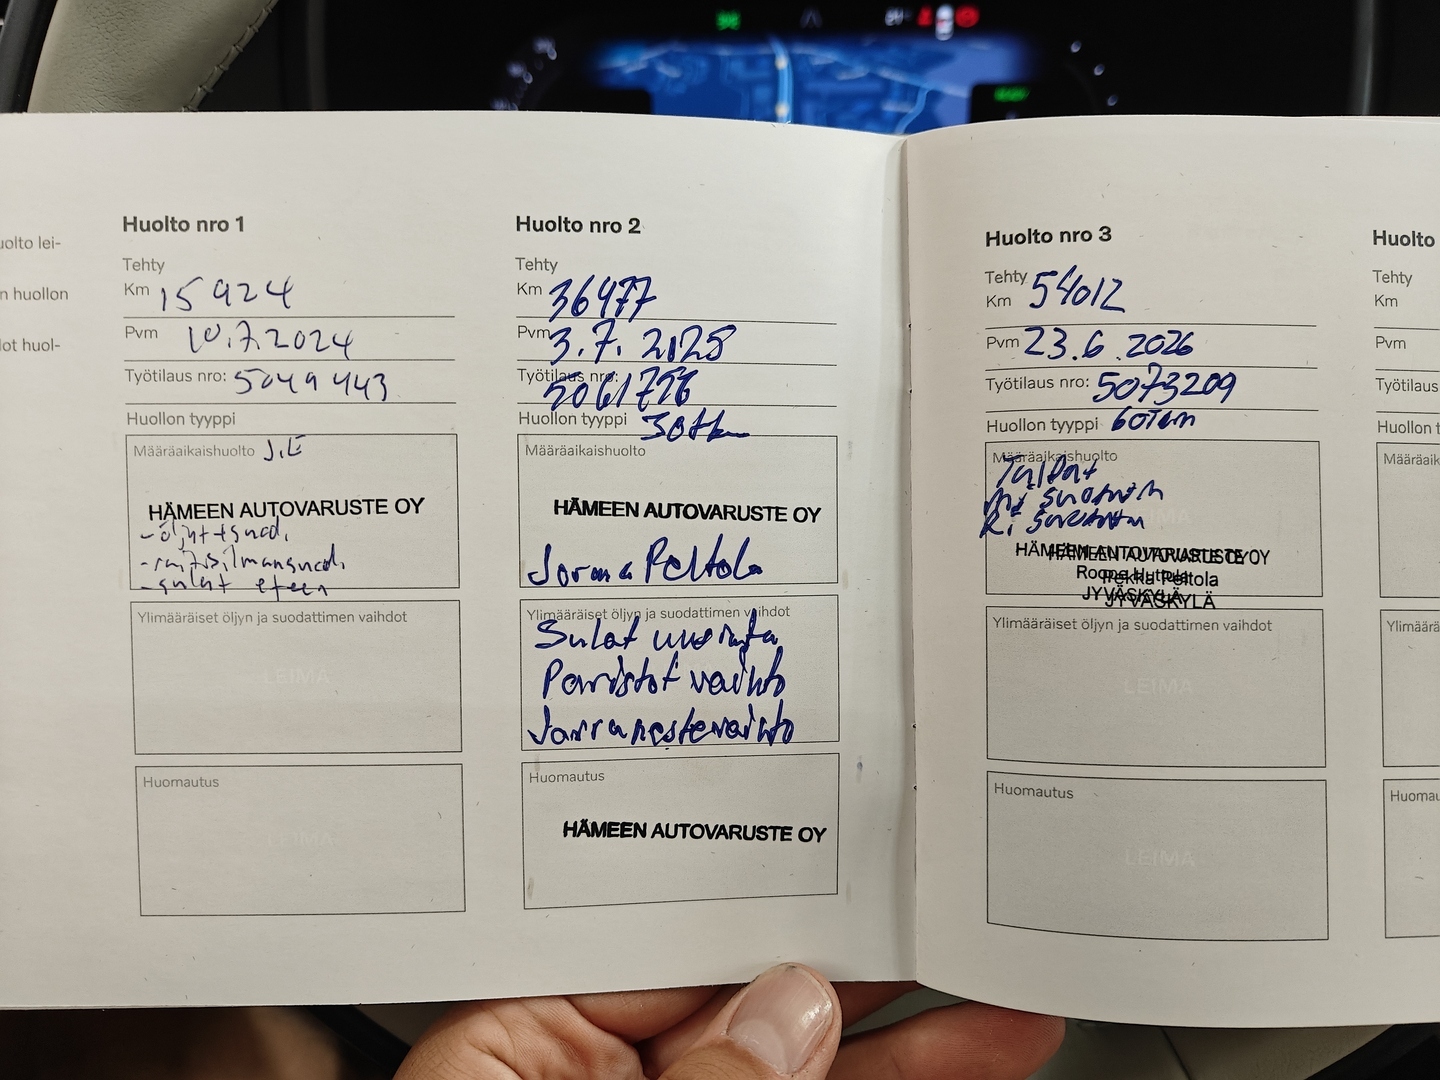 uolto lei-
n huollon
lot huol-
Huolto nro 1
Tehty
Km 15 924
Pvm 10.7.2024
Työtilaus nro: 5049443
Huollon tyyppi
Määräaikaishuolto J.E
HÄMEEN AUTOVARUSTE OY
- öljyt + suod.
- raitisilmansuod.
- sulat eteen
Ylimääräiset öljyn ja suodattimen vaihdot
LEIMA
Huomautus
LEIMA
Huolto nro 2
Tehty
Km 36477
Pvm 3.7.2025
Työtilaus nro:
Huollon tyyppi 30tkm
Määräaikaishuolto
HÄMEEN AUTOVARUSTE OY
Jorma Peltola
Ylimääräiset öljyn ja suodattimen vaihdot
Sulat uusinta
Paristot vaihto
Jarrunestevaihto
Huomautus
HÄMEEN AUTOVARUSTE OY
Huolto nro 3
Tehty
Km 54012
Pvm 23.6.2026
Työtilaus nro: 5073209
Huollon tyyppi
Määräaikaishuolto
HÄMEEN AUTOVARUSTE OY
Pekka Peltola
JYVÄSKYLÄ
Ylimääräiset öljyn ja suodattimen vaihdot
LEIMA
Huomautus
LEIMA
Huolto
Tehty
Km
Pvm
Työtilaus
Huollon t
Määräaik
Ylimäärä
Huomau